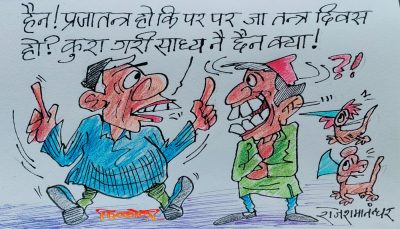 हैन! प्रजातन्त्र हो कि पर पर जा तन्त्र दिवस
हो? कुरा गरी साध्य नै हैन क्या!
?!
राजरामातंन्धर